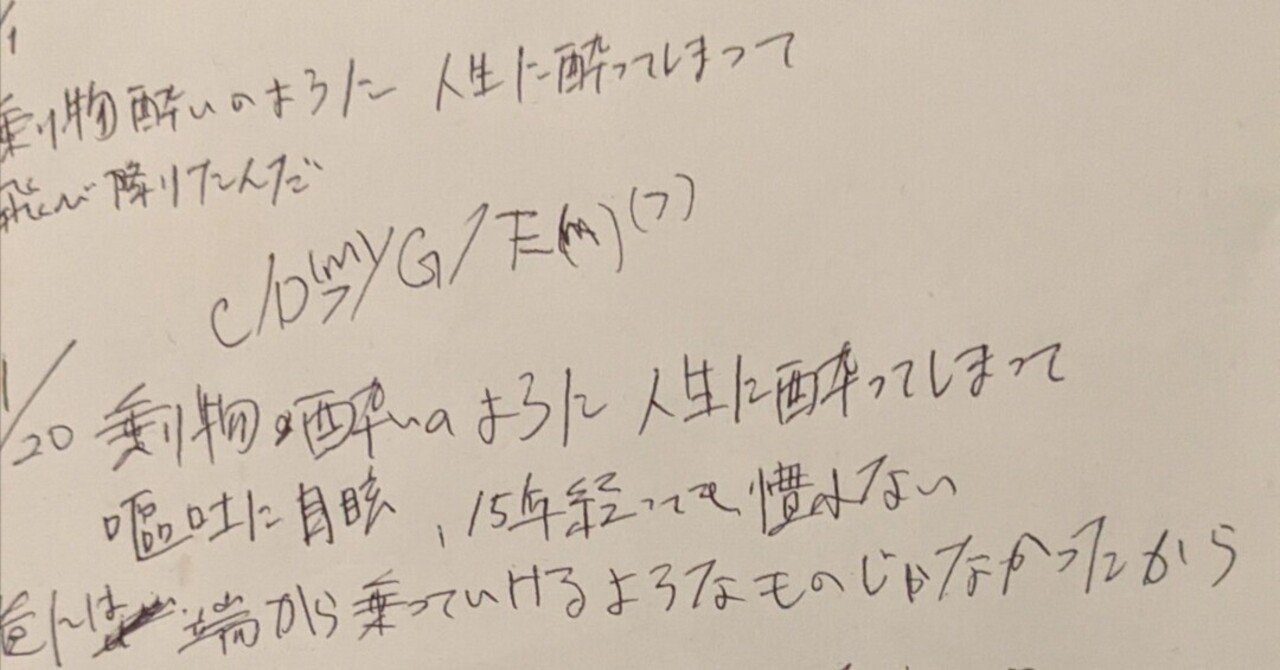 /1
乗り物酔いのように 人生に酔ってしまって
飛び降りたんだ
C/D(m)7/G/E(m)(7)
1/20 乗り物酔いのように 人生に酔ってしまって
嘔吐に目眩、15年経っても慣れない
には 端から乗っていけるようなものじゃなかったから